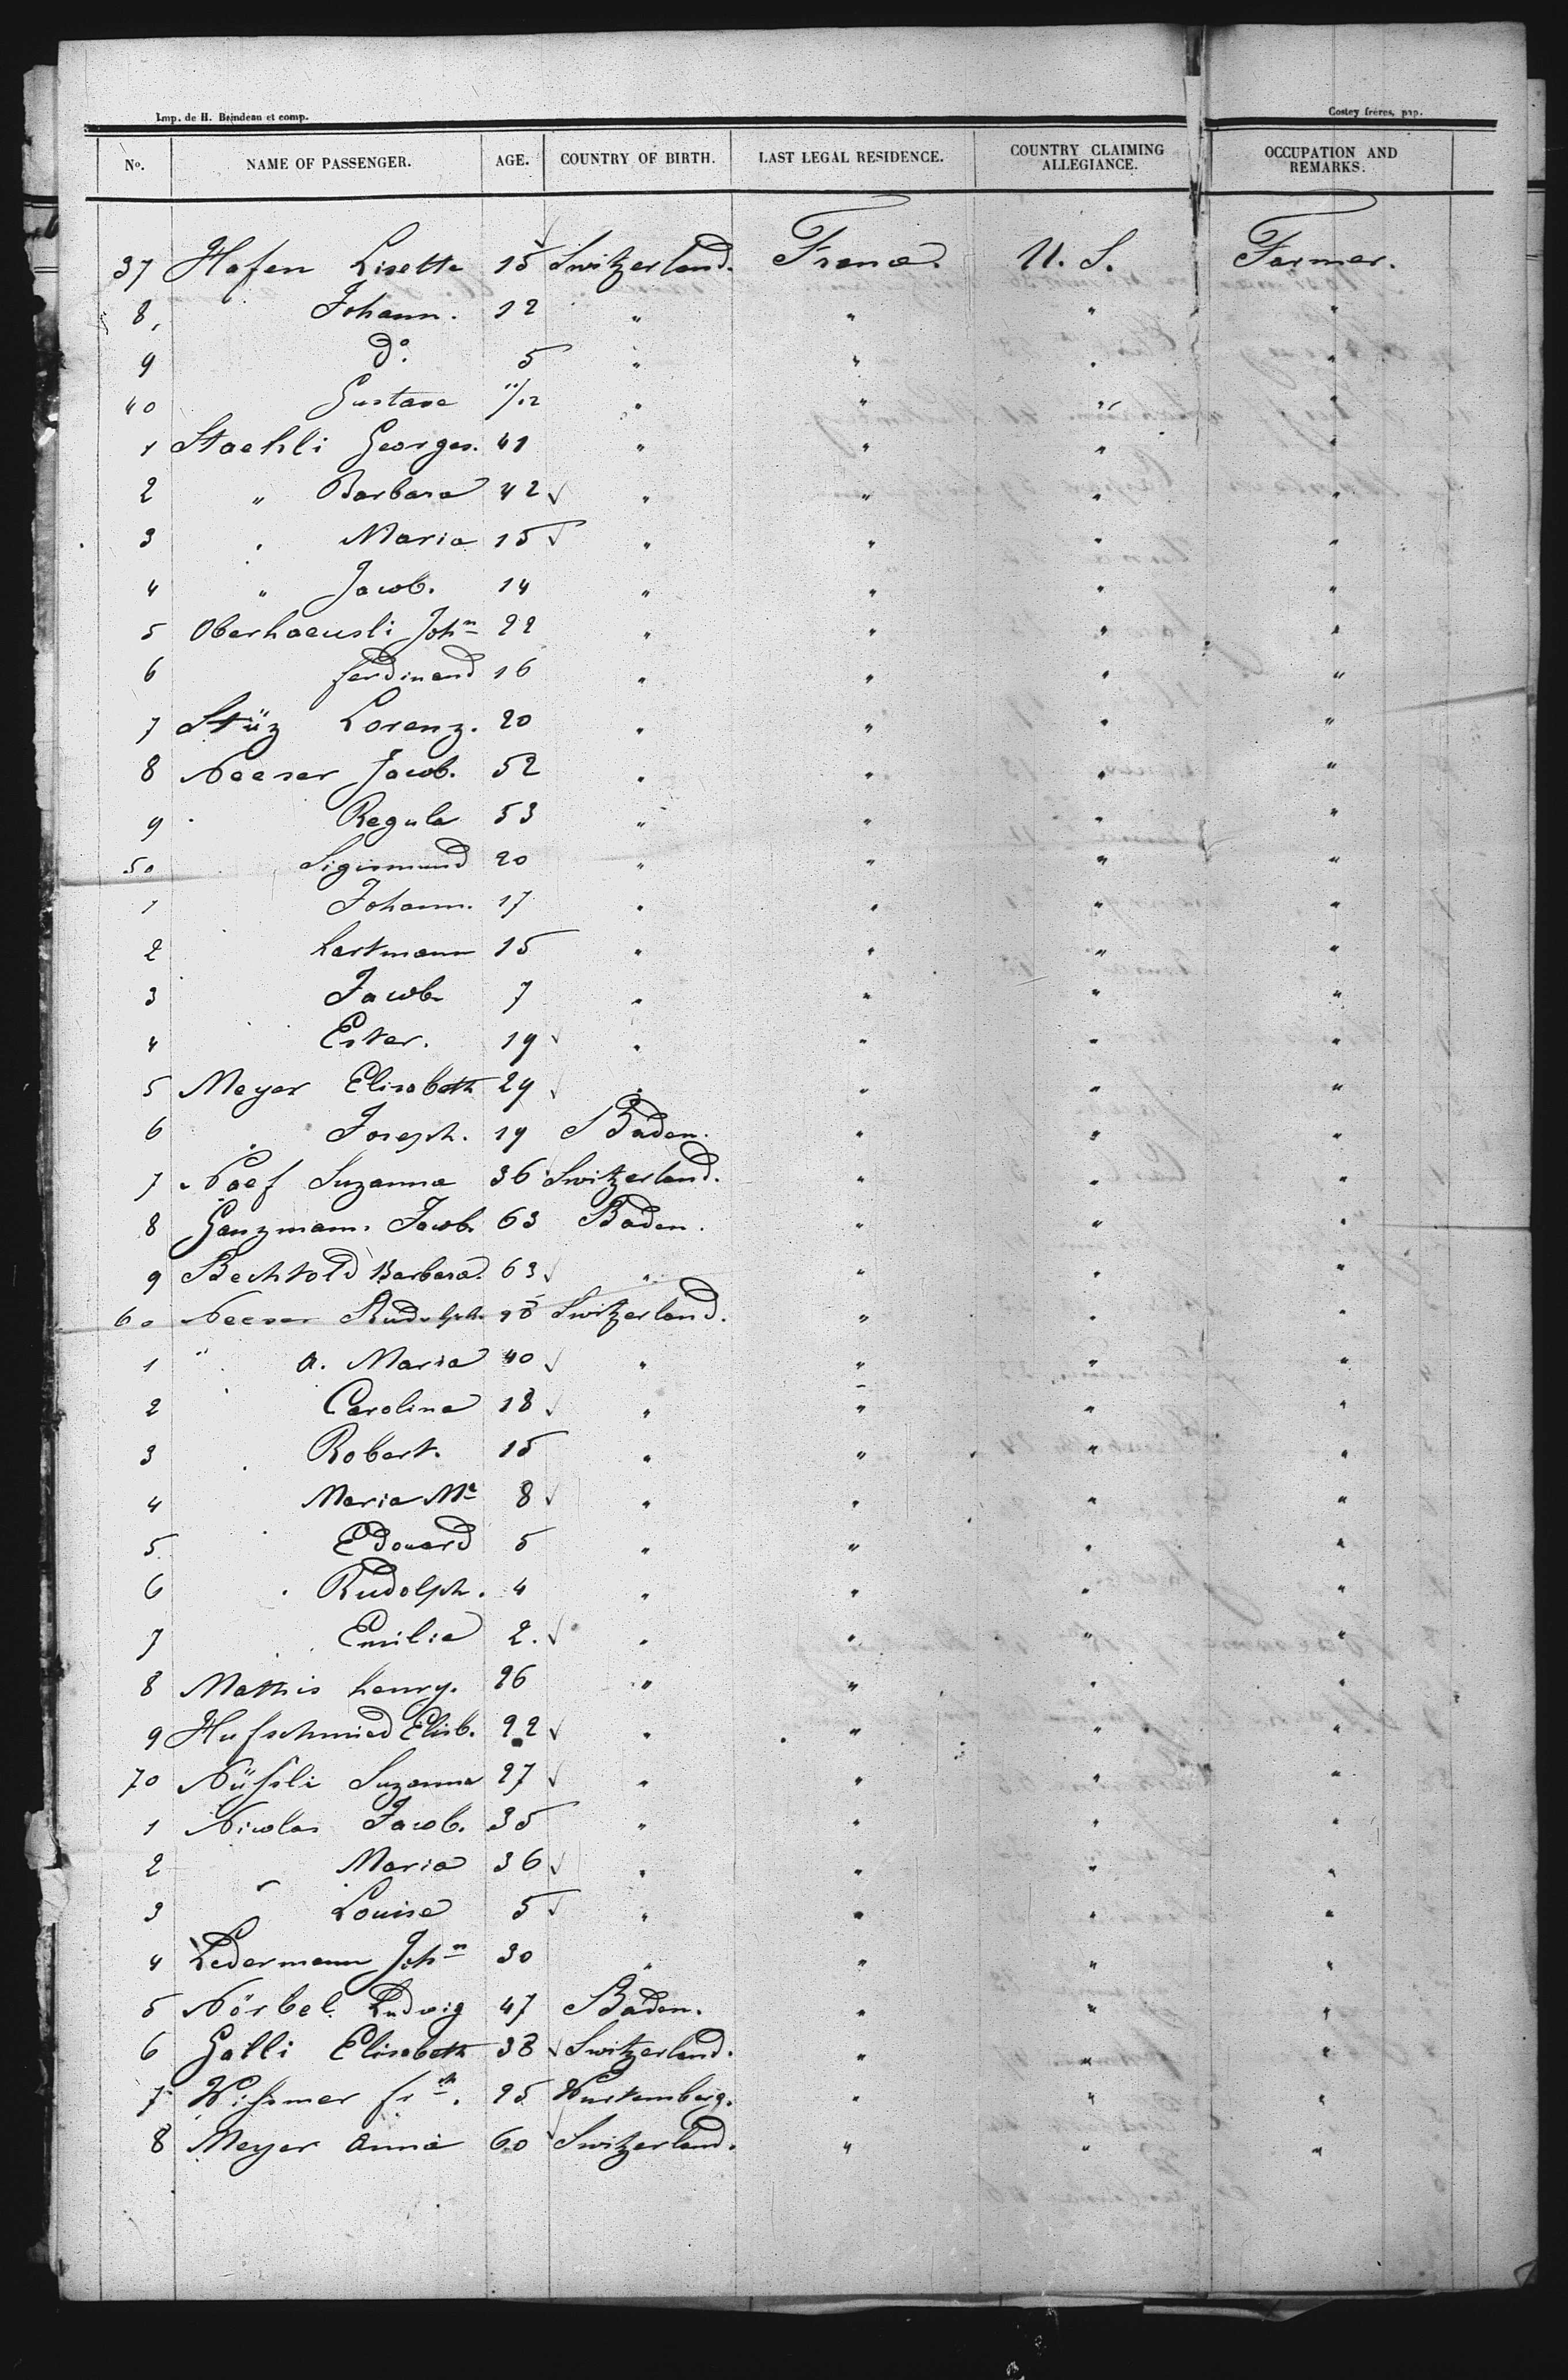 Imp. de H. Brindeau et comp. Costey frères, pap.
No. NAME OF PASSENGER. AGE. COUNTRY OF BIRTH. LAST LEGAL RESIDENCE. COUNTRY CLAIMING ALLEGIANCE. OCCUPATION AND REMARKS.
37 Hafen Lisette 15 √ Switzerland. France. U. S. Farmer.
8, Johann. 12 " " " "
9 do. 5 " " " "
40 Gustave 11/12 " " " "
1 Staehli Georges. 41 " " " "
2 " Barbara 42 √ " " " "
3 " Maria 15 √ " " " "
4 " Jacob. 14 " " " "
5 Oberhaeusli John 22 " " " "
6 ferdinand 16 " " " "
7 Stüz Lorenz. 20 " " " "
8 Neeser Jacob. 52 " " " "
9 " Regula 53 " " " "
50 Sigismund 20 " " " "
1 Johann. 17 " " " "
2 hartmann 15 " " " "
3 Jacob 7 " " " "
4 Ester. 19 √ " " " "
5 Meyer Elisabeth 29 √ " " " "
6 " Joseph. 19 Baden. " " "
7 Naef Suzanna 36 Switzerland. " " "
8 Ganzmann Jacob. 63 Baden. " " "
9 Bechtold Barbara. 63 √ " " " "
60 Neeser Rudolph. Switzerland. " " "
1 " a. Maria 40 √ " " " "
2 " Carolina 18 √ " " " "
3 " Robert. 15 " " " "
4 Maria Ma 8 √ " " " "
5 " Edouard 5 " " " "
6 " Rudolph. 4 " " " "
7 " Emilie 2. √ " " " "
8 Mathis henry. 26 " " " "
9 Hufschmied Elisb. 22 √ " " " "
70 Nüssli Suzanna 27 √ " " " "
1 Nicolas Jacob. 35 " " " "
2 " Maria 36 √ " " " "
3 " Louise 5 √ " " " "
4 Ledermann John 30 " " " "
5 Nörbel Ludwig 47 Baden. " " "
6 Galli Elisabeth 38 √ Switzerland. " " "
7 Wissmer 25 Wurtemberg. " " "
8 Meyer anna 60 √ Switzerland. " " "